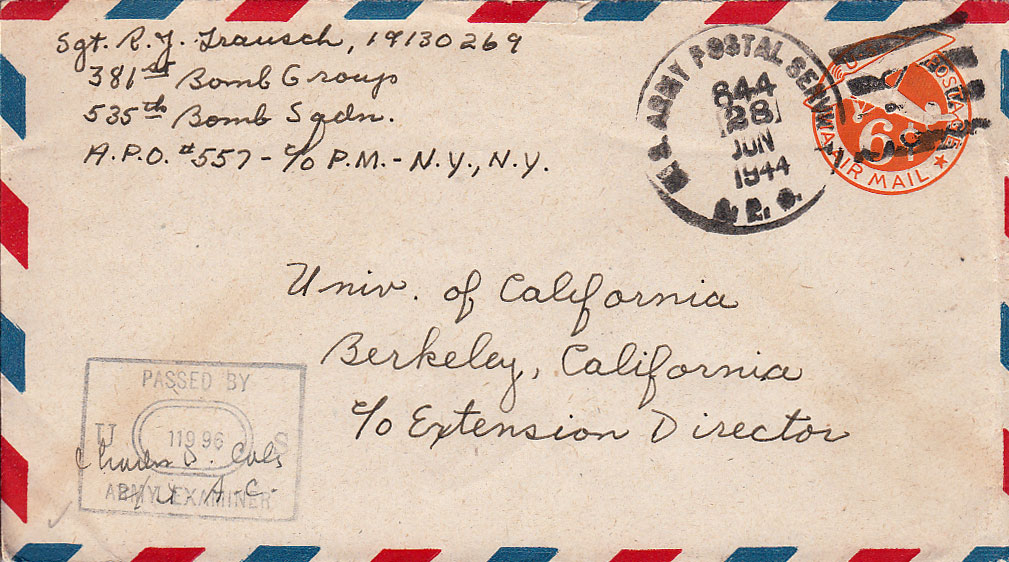 Sgt. R. J. Trausch, 19130269
381st Bomb Group
535th Bomb Sqdn.
A.P.O. #557 - c/o P.M. - N.Y., N.Y.
U.S. ARMY POSTAL SERVICE
844
28
JUN
1944
A. P. O.
6¢
AIR MAIL
Univ. of California
Berkeley, California
c/o Extension Director
PASSED BY
U 11996 S
Charles D.
A.C.
ARMY EXAMINER